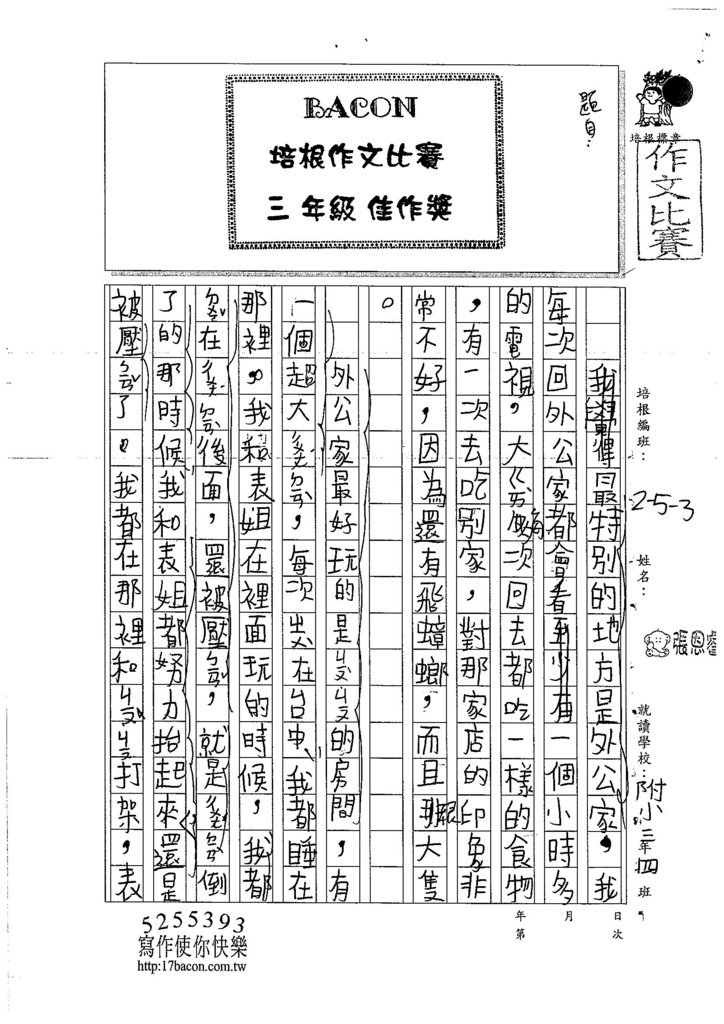 BACON
培根作文比賽
三年級佳作獎
題目:
培根標章
作文比賽
培根編班: 2-5-3
姓名: 張恩睿
就讀學校: 附小三年四班
年 月 日
第 次
我覺得最特別的地方是外公家,我
每次回外公家都會看至少有一個小時多
的電視,大ㄍㄞ每次回去都吃一樣的食物
,有一次去吃別家,對那家店的印象非
常不好,因為還有飛蟑螂,而且很大隻
。
外公家最好玩的是ㄐㄡㄐㄡ的房間,有
一個超大,每次在台中、我都睡在
那裡。我和表姐在裡面玩的時候,我都
在後面,還被壓,就是倒
了的那時候我和表姐都努力抬起來還是
被壓了。我都在那裡和ㄐㄡㄐㄡ打架,表
5255393
寫作使你快樂
http:17bacon.com.tw